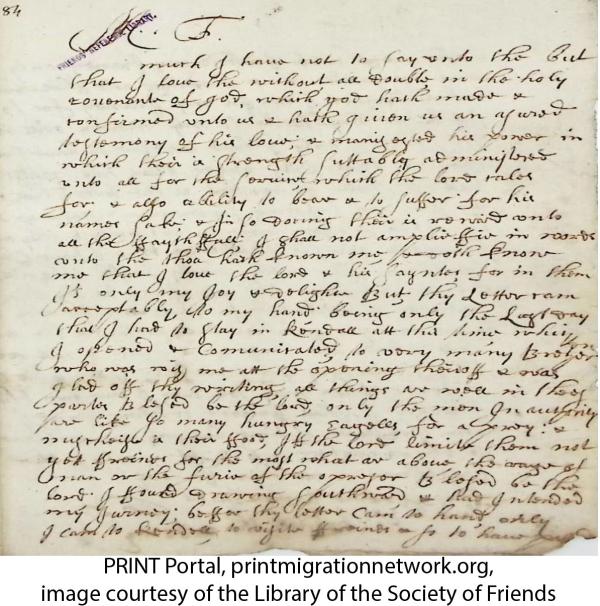 84
FRIENDS REFERENCE LIBRARY.
M. F.
much I have not to say unto the but
that I love the without all double in the holy
covenante of god, which god hath made &
confirmed unto us & hath given us an asured
testemony of his love; & manifested his power in
which their is strength suttably administered
unto all for the service which the lord cales
for: & also ability to beare & to suffer: for his
names sake; & In so doeing their is reward unto
all the ffaythffull: I shall not ampliefie in words
unto the thou hath known me & doth know
me that I love the lord & his saynts for in them
Is only my Joy & delight But thy Letter cam
acceptably to my hand being only the Last day
that I had to stay in Kendall att this time which
I opened & Comunicated to very many
who was with me att the opening theiroff & was
glad off thy writing, all things are well in thes
partes Blesed be the lord, only the men In authority
are like so many hungry Eagells for a prey: &
their Iff the lord limite them not
yet ffreinds for the most what are above the rage of
man or the furie of the opresor Blesed be the
lord: I drawing Southward & had Intended
my Jurney; beffor thy letter Cam to hand, only
I cam to Kendall to ffreinds & so to have
PRINT Portal, printmigrationnetwork.org,
image courtesy of the Library of the Society of Friends